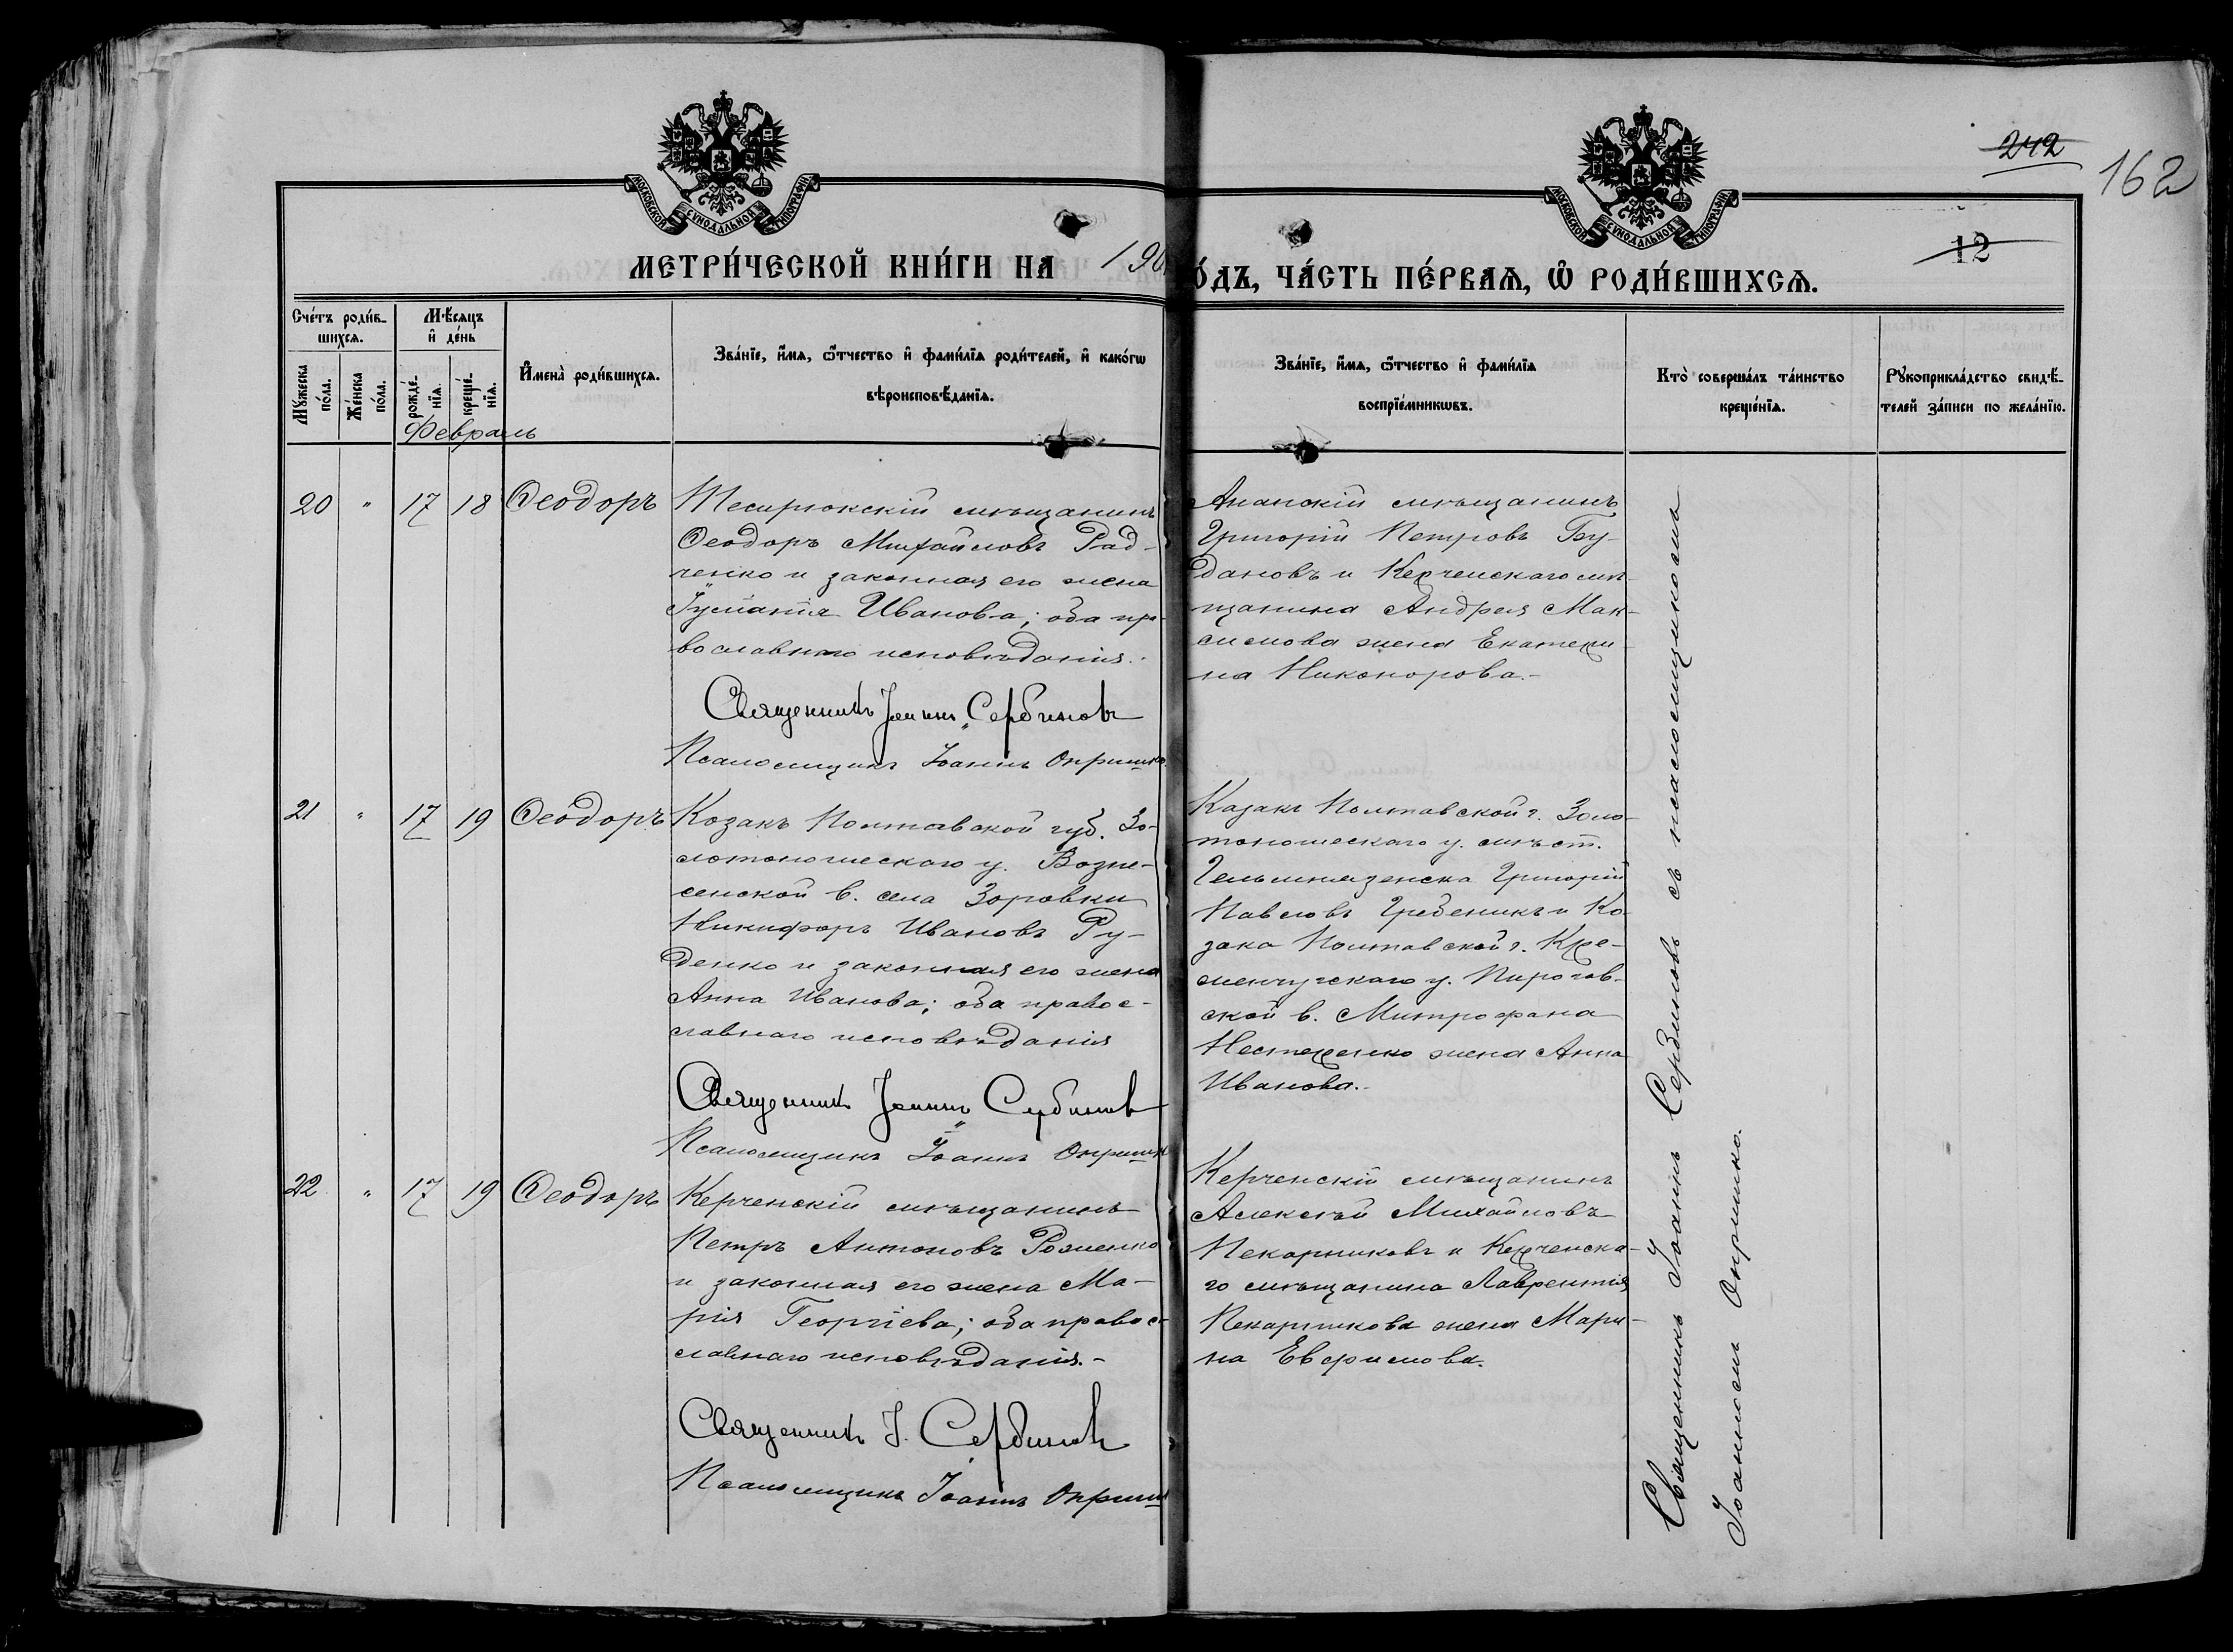 242
162
12
МОСКОВСКОЙ СѴНОДАЛЬНОЙ ТИПОГРАФІИ
МОСКОВСКОЙ СѴНОДАЛЬНОЙ ТИПОГРАФІИ
МЕТРИ́ЧЕСКОЙ КНИ́ГИ НА 190
О́ДЪ, ЧА́СТЬ ПЕ́РВАѦ, Ѡ҆ РОДИ́ВШИХСѦ.
Сче́тъ роди́в-
шихсѧ.
Мꙋ́жеска по́ла.
Же́нска по́ла.
Мѣ́сѧцъ
и҆ де́нь
рожде́-
нїѧ.
креще́-
нїѧ.
Февраль
И҆мена̀ роди́вшихсѧ.
Зва́нїе, и҆́мѧ, ѻ҆́тчество и҆ фами́лїѧ роди́телей, и҆ како́гѡ
вѣроисповѣ́данїѧ.
Зва́нїе, и҆́мѧ, ѻ҆́тчество и҆ фами́лїѧ
воспрїе́мникѡвъ.
Кто̀ соверша́лъ та́инство
креще́нїѧ.
Рꙋкоприкла́дство свидѣ́-
телей за́писи по жела́нїю.
20 " 17 18 Ѳеодоръ
Темрюкскій мѣщанинъ
Ѳеодоръ Михайловъ Рад-
ченко и законная его жена
Іуліанія Иванова; оба пра-
вославнаго исповѣданія.
Священникъ Іоаннъ Сербиновъ
Псаломщикъ Іоаннъ Опришко
Анапскій мѣщанинъ
Григорій Петровъ Бу-
дановъ и Керченскаго мѣ-
щанина Андрея Мак-
симова жена Екатери-
на Никонорова.-
21 " 17 19 Ѳеодоръ
Козакъ Полтавской губ. Зо-
лотоношскаго у. Возне-
сенской в. села Зоровки
Никифоръ Ивановъ Ру-
денко и законная его жена
Анна Иванова; оба правос-
лавнаго исповѣданія
Священникъ Іоаннъ Сербиновъ
Псаломщикъ Іоаннъ Опришк
Казакъ Полтавской г. Золо-
тоношскаго у. мѣст.
Гельмязенска Григорій
Павловъ Гребеникъ и Ко-
зака Полтавской г. Кре-
менчугскаго у. Пирогов-
ской в. Митрофана
Нестеренко жена Анна
Иванова.-
22 " 17 19 Ѳеодоръ
Керченскій мѣщанинъ
Петръ Антоновъ Роженко
и законная его жена Ма-
рія Георгіева; оба правос-
лавнаго исповѣданія.-
Священникъ І. Сербиновъ
Псаломщикъ Іоаннъ Опришк
Керченскій мѣщанинъ
Алексѣй Михайловъ
Пекарниковъ и Керченска-
го мѣщанина Лаврентія
Пекарникова жена Мари-
на Евфимова.
Священникъ Іоаннъ Сербиновъ съ псаломщикомъ
Іоанномъ Опришко.